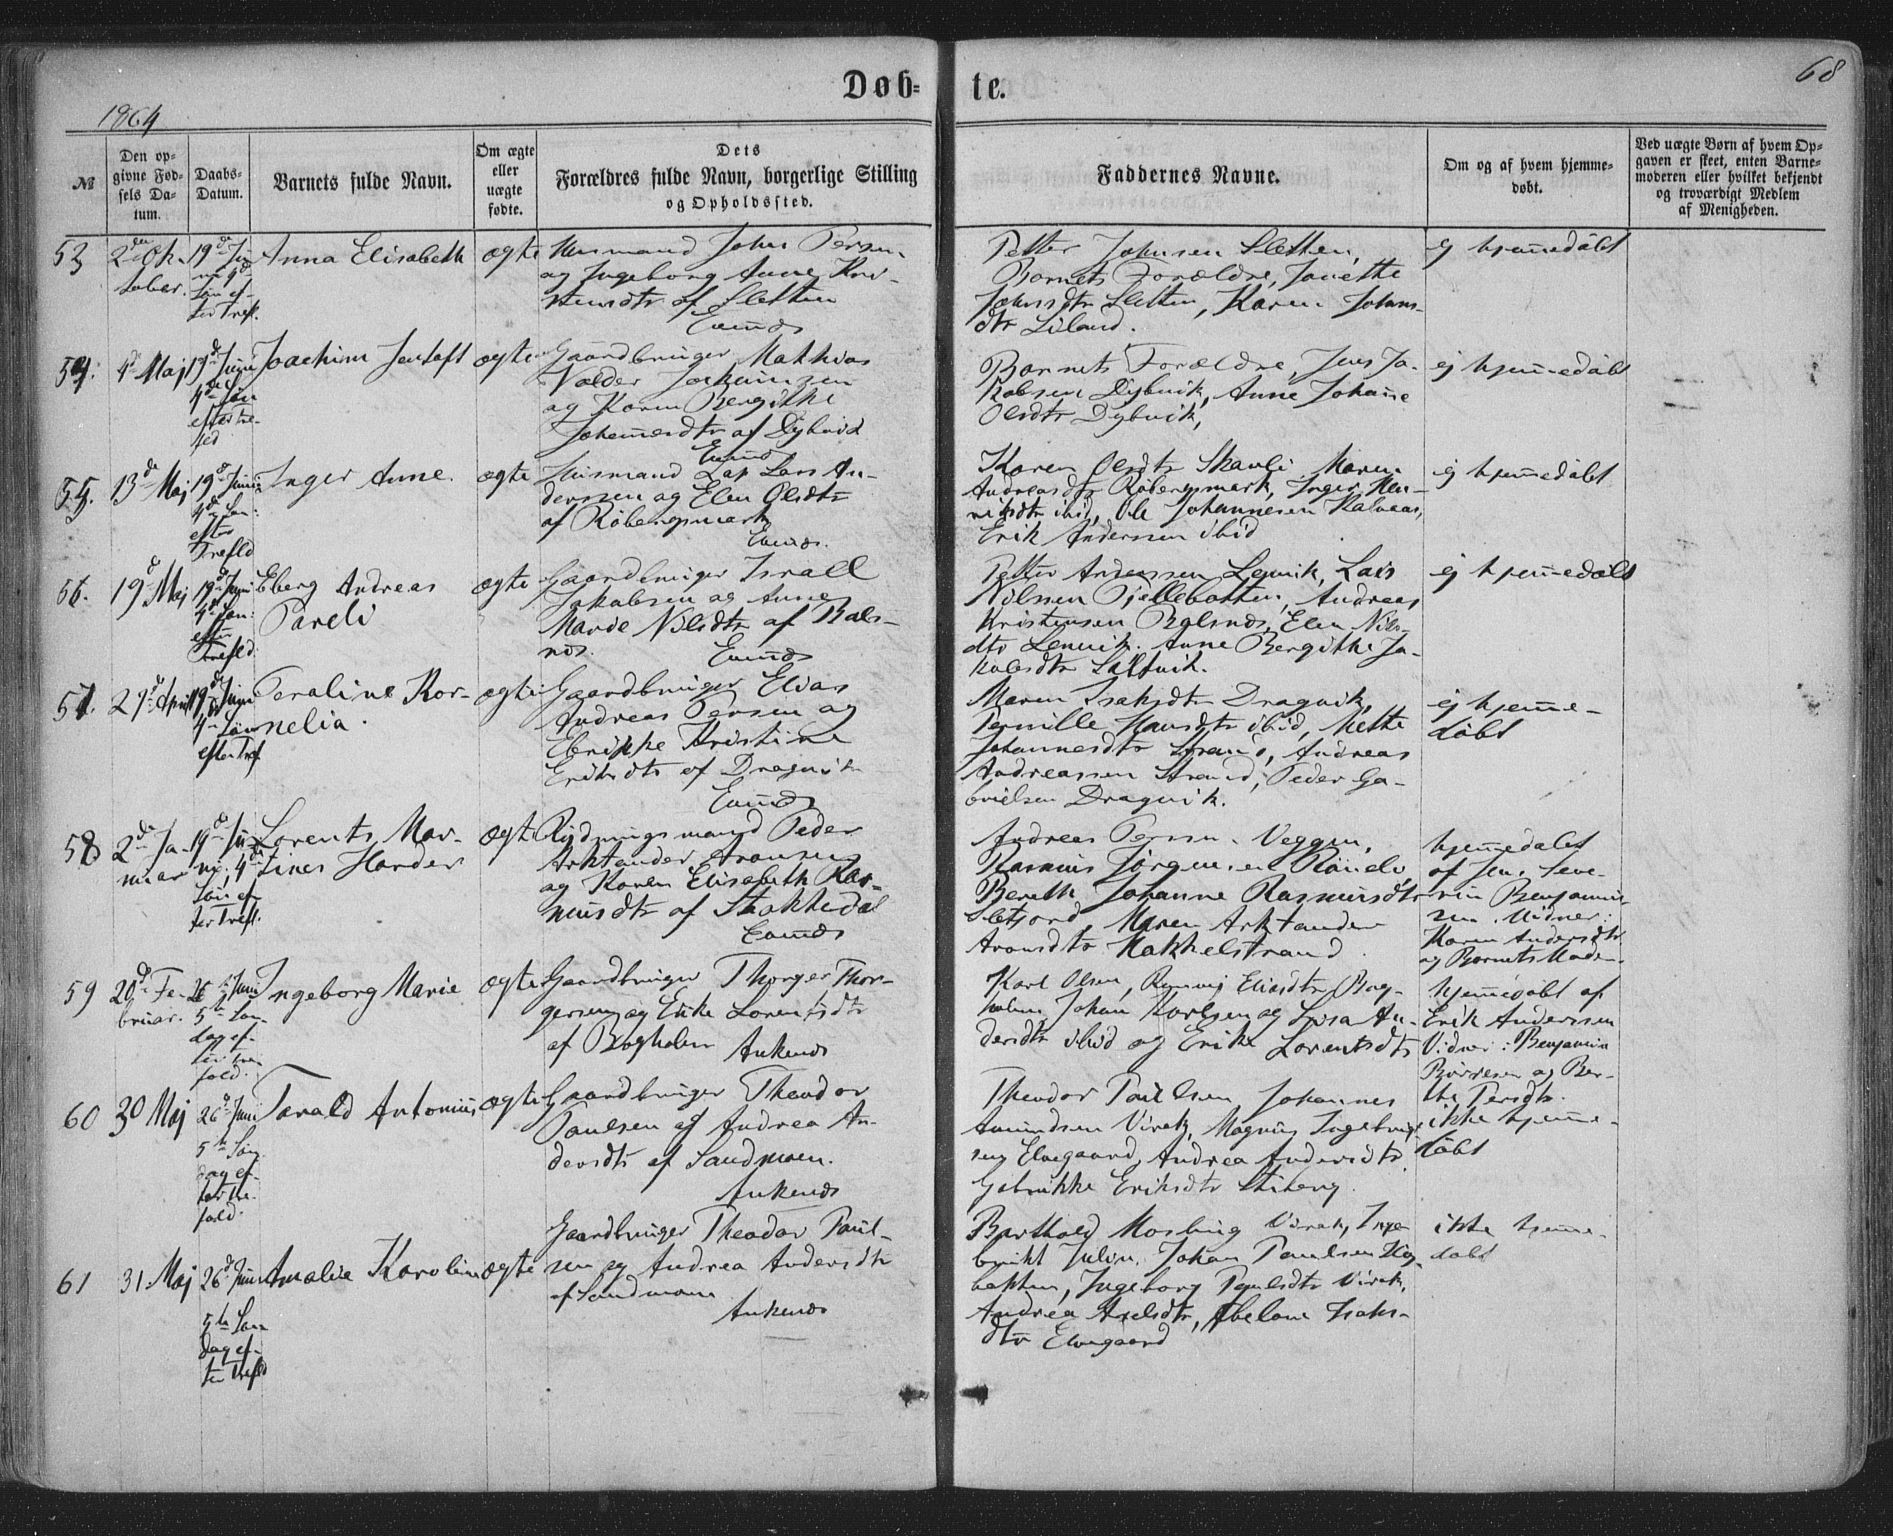 Døb-
te.
68
1864
№
Den op-
givne Fød-
sels Da-
tum.
Daabs-
Datum.
Barnets fulde Navn.
Om ægte
eller
uægte
fødte.
Dets
Forældres fulde Navn, borgerlige Stilling
og Opholdssted.
Faddernes Navne.
Om og af hvem hjemme-
døbt.
Ved uægte Børn af hvem Op-
gaven er skeet, enten Barne-
moderen eller hvilket bekjendt
og troværdigt Medlem
af Menigheden.
53
2den Ok-
tober.
19de Ju-
ni 4d
Søn ef-
ter Tref.
Anna Elisabeth
ægte
Husmand Johs Persen
og Ingeborg Anne Kri-
stensdtr af Sletten
Evenæs
Petter Johnsen Sletten,
Barnets Forældre, Janette
Johnsdtr Sletten, Karen Johns-
dtr Liland.
ej hjemmedøbt
54.
4d Maj
19d Juni
4d Søn
efter Tre-
fld
Joachim Jentoft
ægte
Gaardbruger Mathias
Nolder Joakimsen
og Karen Bergitthe
Johannesdtr af Dybvik
Evenæs
Barnets Forældre, Jens Ja-
kobsen Dybvik, Anne Johanne
Olsdtr Dybvik,
ej hjemmedøbt
55.
13d Maj
19d Juni
4d Søn
efter
Trefld
Inger Anne.
ægte
Husmand Lap Lars An-
derssen og Elen Olsdtr
af Røbergsmark
Evenæs.
Karen Olsdtr Skavli, Maren
Andreasdtr Røbergsmark, Inger Hen-
riksdtr ibid, Ole Johannesen Kalvaas,
Erik Anderssen ibid
ej hjemmedøbt
56.
19d Maj
19d Juni
4d Søn
efter
Trefld.
Eberg Andreas
Pareli
ægte
Gaardbruger Israel
Jakobsen og Anne
Marie Nilsdtr af Bals-
nes.
Evenæs
Petter Anderssen Lenvik, Lars
Nilssen Fjellebotten, Andreas
Kristensen Balsnes, Elen Nils-
dtr Lenvik. Anne Bergithe Ja-
kobsdtr
ej hjemmedøbt
57.
29d April
19d Juni
4d Søn
efter Tref
Peraline Kor-
nelia.
ægte
Gaardbruger Elias
Andreas Persen og
Kristine
Eriksdtr af Dragvik
Evenæs
Maren Isaksdtr Dragvik,
Pernille Hansdtr ibid, Mette
Johannesdtr Strand, Andreas
Andreassen Strand, Peder Ga-
brielsen Dragvik.
ej hjemme-
døbt
58
2den Ja-
nuar
19d Ju-
ni, 4d
Søn ef-
ter Tref.
Lorents Mar-
tines Harder
ægte
Rydningsmand Peder
Arktander Aronsen
og Karen Elisabeth Ras-
musdtr af Stokkedal
Evenæs
Andreas Persen Veggen,
Rasmus Jørgensen
Bereth Johanne Rasmusdtr
Sletjord Maren Arktander
Aronsdtr Kakkelstrand
hjemmedøbt
af Jens Seve-
rin Benjamin-
sen. Vidner:
Karen Andersdtr
og Barnets Moder.
59
20d Fe-
bruar.
26d Juni
5te Søn-
dag ef-
ter tre-
fold.
Ingeborg Marie
ægte
Gaardbruger Thorger Thor-
gersen og Erike Lorentsdtr
af Bogholm
Ankenæs
Karl Olsen, Eliasdtr Bog-
holm Johan Karlsen og Lovisa An-
dersdtr ibid og Erike Lorentsdtr
hjemmedøbt af
Erik Anderssen
Vidner: Benjamin
Børresen og Ber-
the Persdtr.
60
30 Maj
26d Juni
5te Søn
dag ef-
ter tre-
fold.
Tarald Antonius
ægte
Gaardbruger Theodor
Paulsen og Andrea An-
dersdtr af Sandmoen.
Ankenæs
Theodor Paulsen, Johannes
Amundsen Virak, Magnus Ingebrigt-
sen Elvegaard, Andrea Andersdtr
Eriksdtr Stiberg
ikke hjemme-
døbt
61
31. Maj
26d Juni
5te Søn
dag ef-
ter Trefld
Amalie Karoline
ægte
Gaardbruger Theodor Paul-
sen og Andrea Andersdtr
af Sandmoen
Ankenæs
Barthold Mosling Virak, Inge-
brikt Julin, Johan Paulsen
bakken, Ingeborg Paulsdtr Virak,
Andrea Axelsdtr, Abelone Isaks-
dtr Elvegaard
ikke hjemme-
døbt